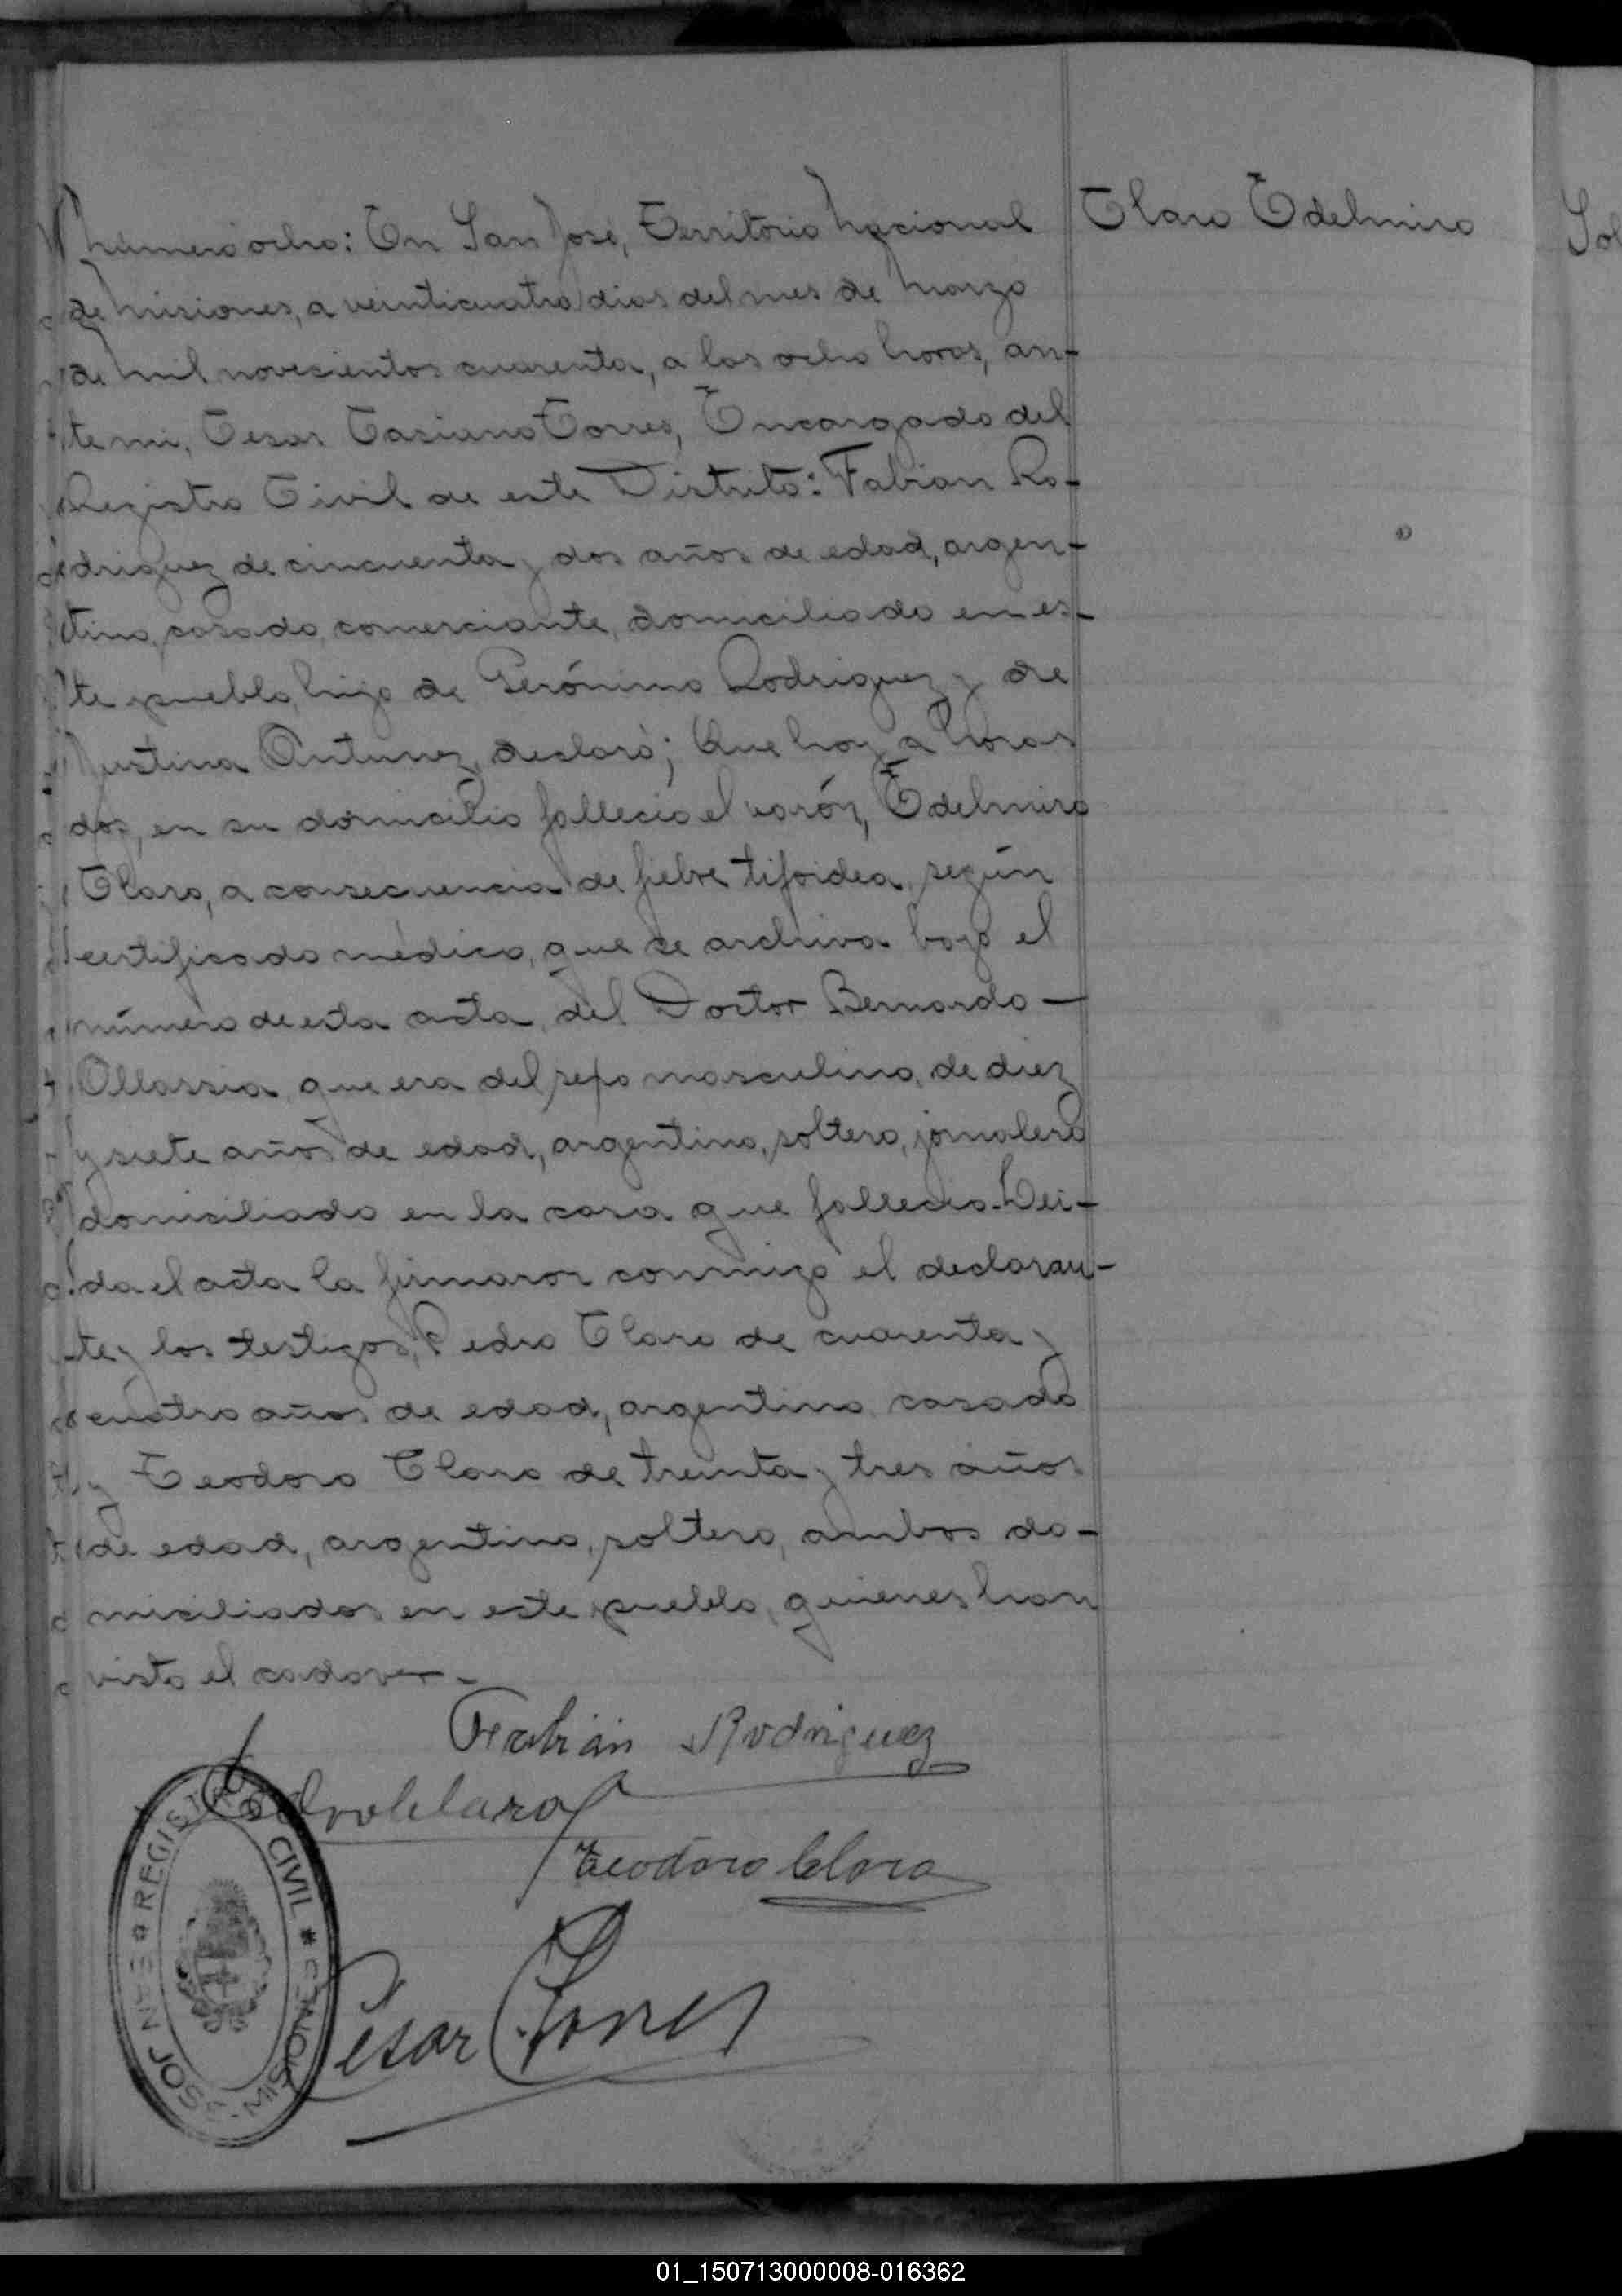 Número ocho: En San José, Territorio Nacional
de Misiones, a veinticuatro dias del mes de Marzo
de Mil novecientos cuarenta, a las ocho horas, an-
te mi, Cesar Casiano Torres, Encargado del
Registro Civil de este Distrito: Fabian Ro-
driguez de cincuenta y dos años de edad, argen-
tino, casado, comerciante, domiciliado en es-
te pueblo, hijo de Gerónimo Rodriguez y de
Justina Antunez, declaró; Que hoy a horas
dos, en su domicilio fallecio el varón, Edelmiro
Claro, a consecuencia de fiebre tifoidea, según
certificado médico, que se archiva bajo el
número de esta acta, del Doctor Bernardo —
que era del sexo masculino, de diez
y siete años de edad, argentino, soltero, jornalero
domiciliado en la casa que fallecio. Lei-
da el acta la firmaron conmigo el declaran-
te y los testigos, Pedro Claro de cuarenta y
cuatro años de edad, argentino casado
y Teodoro Claro de treinta y tres años
de edad, argentino, soltero, ambos do-
miciliados en este pueblo, quienes han
visto el cadaver.-
Claro Edelmiro
Fabián Rodriguez
Pedro Claro
Teodoro Claro
Cesar Torres
REGISTRO CIVIL * MISIONES
SAN JOSE
01_150713000008-016362